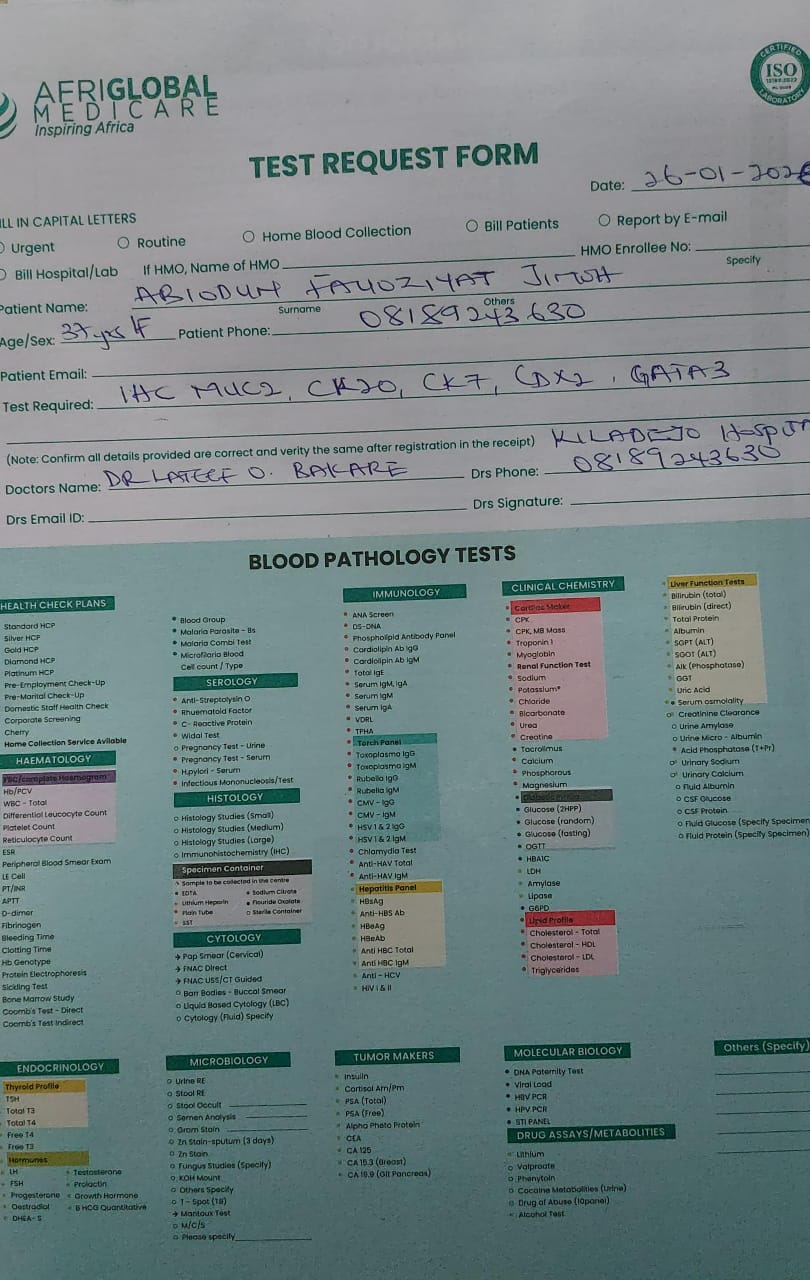 AFRIGLOBAL
MEDICARE
Inspiring Africa
CERTIFIED
ISO
LABORATORY
TEST REQUEST FORM
Date: 26-01-202
ILL IN CAPITAL LETTERS
Urgent
Routine
Home Blood Collection
Bill Patients
Report by E-mail
Bill Hospital/Lab
If HMO, Name of HMO
HMO Enrollee No:
Specify
Patient Name: ABIODUN FAUOZIYAT JIMOH
Surname
Others
Age/Sex: 37yrs/F Patient Phone: 08189243630
Patient Email:
Test Required: IHC MUC2, CK20, CK7, CDX2, GATA3
(Note: Confirm all details provided are correct and verity the same after registration in the receipt) KILADEJO Hospital
Doctors Name: DR LATEEF O. BAKARE Drs Phone: 08189243630
Drs Email ID: Drs Signature:
BLOOD PATHOLOGY TESTS
HEALTH CHECK PLANS
Standard HCP
Silver HCP
Gold HCP
Diamond HCP
Platinum HCP
Pre-Employment Check-Up
Pre-Marital Check-Up
Domestic Staff Health Check
Corporate Screening
Cherry
Home Collection Service Avilable
HAEMATOLOGY
FBC/complete Haemogram
Hb/PCV
WBC - Total
Differential Leucocyte Count
Platelet Count
Reticulocyte Count
ESR
Peripheral Blood Smear Exam
LE Cell
PT/INR
APTT
D-dimer
Fibrinogen
Bleeding Time
Clotting Time
Hb Genotype
Protein Electrophoresis
Sickling Test
Bone Marrow Study
Coomb's Test - Direct
Coomb's Test Indirect
Blood Group
Malaria Parasite - Bs
Malaria Combi Test
Microfilaria Blood
Cell count / Type
SEROLOGY
Anti-Streptolysin O
Rhuematoid Factor
C- Reactive Protein
Widal Test
Pregnancy Test - Urine
Pregnancy Test - Serum
H.pylori - Serum
Infectious Mononucleosis/Test
HISTOLOGY
Histology Studies (Small)
Histology Studies (Medium)
Histology Studies (Large)
Immunohistochemistry (IHC)
Specimen Container
Sample to be collected in the centre
EDTA
Sodium Citrate
Lithium Heparin
Flouride Oxalate
Plain Tube
Sterile Container
SST
CYTOLOGY
Pap Smear (Cervical)
FNAC Direct
FNAC USS/CT Guided
Barr Bodies - Buccal Smear
Liquid Based Cytology (LBC)
Cytology (Fluid) Specify
IMMUNOLOGY
ANA Screen
DS-DNA
Phospholipid Antibody Panel
Cardiolipin Ab IgG
Cardiolipin Ab IgM
Total IgE
Serum IgM, IgA
Serum IgM
Serum IgA
VDRL
TPHA
Torch Panel
Toxoplasma IgG
Toxoplasma IgM
Rubella IgG
Rubella IgM
CMV - IgG
CMV - IgM
HSV 1 & 2 IgG
HSV 1 & 2 IgM
Chlamydia Test
Anti-HAV Total
Anti-HAV IgM
Hepatitis Panel
HBsAg
Anti-HBS Ab
HBeAg
HBeAb
Anti HBC Total
Anti HBC IgM
Anti - HCV
HIV I & II
CLINICAL CHEMISTRY
Cardiac Maker
CPK
CPK, MB Mass
Troponin 1
Myoglobin
Renal Function Test
Sodium
Potassium*
Chloride
Bicarbonate
Urea
Creatine
Tacrolimus
Calcium
Phosphorous
Magnesium
Glucose (2HPP)
Glucose (random)
Glucose (fasting)
OGTT
HBA1C
LDH
Amylase
Lipase
G6PD
Lipid Profile
Cholesterol - Total
Cholesterol - HDL
Cholesterol - LDL
Triglycerides
Liver Function Tests
Bilirubin (total)
Bilirubin (direct)
Total Protein
Albumin
SGPT (ALT)
SGOT (ALT)
Alk (Phosphatase)
GGT
Uric Acid
Serum osmolality
Creatinine Clearance
Urine Amylase
Urine Micro - Albumin
Acid Phosphatase (T+Pr)
Urinary Sodium
Urinary Calcium
Fluid Albumin
CSF Glucose
CSF Protein
Fluid Glucose (Specify Specimen
Fluid Protein (Specify Specimen)
ENDOCRINOLOGY
Thyroid Profile
TSH
Total T3
Total T4
Free T4
Free T3
Hormones
LH
Testosterone
FSH
Prolactin
Progesterone
Growth Hormone
Oestradiol
B HCG Quantitative
DHEA- S
MICROBIOLOGY
Urine RE
Stool RE
Stool Occult
Semen Analysis
Gram Stain
Zn Stain-sputum (3 days)
Zn Stain
Fungus Studies (Specify)
KOH Mount
Others Specify
T - Spot (TB)
Mantoux Test
M/C/S
Please specify
TUMOR MAKERS
Insulin
Cortisol Am/Pm
PSA (Total)
PSA (Free)
Alpha Pheto Protein
CEA
CA 125
CA 15.3 (Breast)
CA 19.9 (Git Pancreas)
MOLECULAR BIOLOGY
DNA Paternity Test
Viral Load
HBV PCR
HPV PCR
STI PANEL
DRUG ASSAYS/METABOLITIES
Lithium
Valproate
Phenytoin
Cocaine Metabolities (Urine)
Drug of Abuse (10panel)
Alcohol Test
Others (Specify)